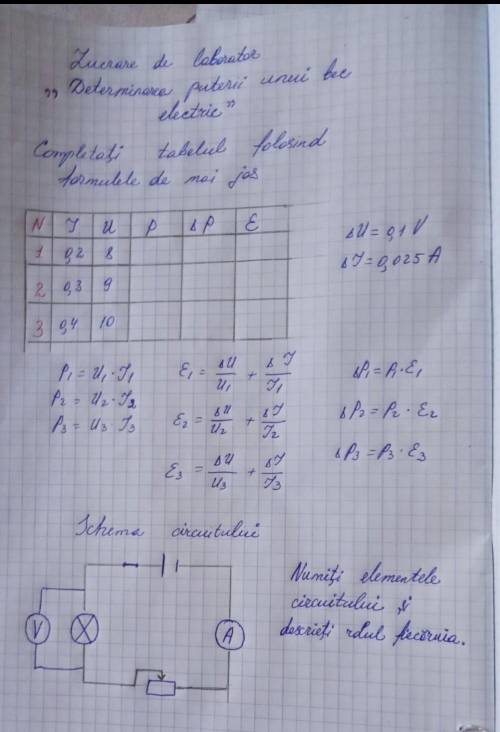 Lucrare de laborator
„Determinarea puterii unui bec
electric”
Completați tabelul folosind
formulele de mai jos
N I U P ΔP Ɛ
1 0,2 8
2 0,3 9
3 0,4 10
ΔU = 0,1 V
ΔI = 0,025 A
P₁ = U₁·I₁
P₂ = U₂·I₂
P₃ = U₃·I₃
Ɛ₁ = ΔU/U₁ + ΔI/I₁
Ɛ₂ = ΔU/U₂ + ΔI/I₂
Ɛ₃ = ΔU/U₃ + ΔI/I₃
ΔP₁ = P₁·Ɛ₁
ΔP₂ = P₂·Ɛ₂
ΔP₃ = P₃·Ɛ₃
Schema circuitului
V
A
Numiți elementele
circuitului și
descrieți rolul fiecăruia.